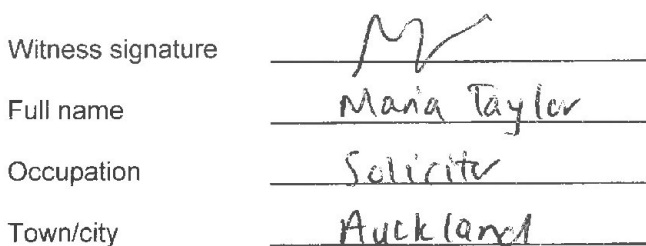 Witness signature
Full name Maria Taylor
Occupation Solicitor
Town/city Auckland